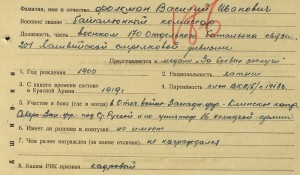 Фамилия, имя и отчество Фокман Василий Иванович
Военное звание Батальонный комиссар
Должность, часть военком 170 Отдельного батальона связи,
201 Латвийской стрелковой дивизии
Представляется к медали „За боевые заслуги"
1. Год рождения 1900
2. Национальность латыш
3. С какого времени состоит
в Красной Армии 1919г
4. Партийность член ВКП(б) с 1918г.
5. Участие в боях (где и когда) в Отеч. войне Западн. фр.
Северо-Зап. фр. под Ст. Руссой 16 немецкой армии
6. Имеет ли ранения и контузии не имеет
7. Чем ранее награжден (за какие отличия) не награждался
8. Каким РВК призван кадровой